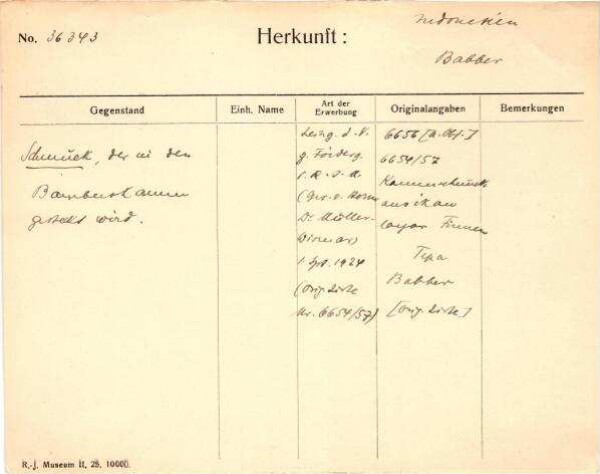 No. 36343
Herkunft:
Indonesien
Babber
Gegenstand
Einh. Name
Art der Erwerbung
Originalangaben
Bemerkungen
Schmuck, der in den
Bambuskamm
gesteckt wird.
d. V.
z. Förderg.
d. R. J. M.
Dr. Müller-
Wismar)
1924
(Orig. Liste
Nr. 6654/57)
6656
6654/57
Kammschmuck
aus ikan
layar
Tepa
Babber
[Orig. Liste]
R.-J. Museum II, 25, 10000.